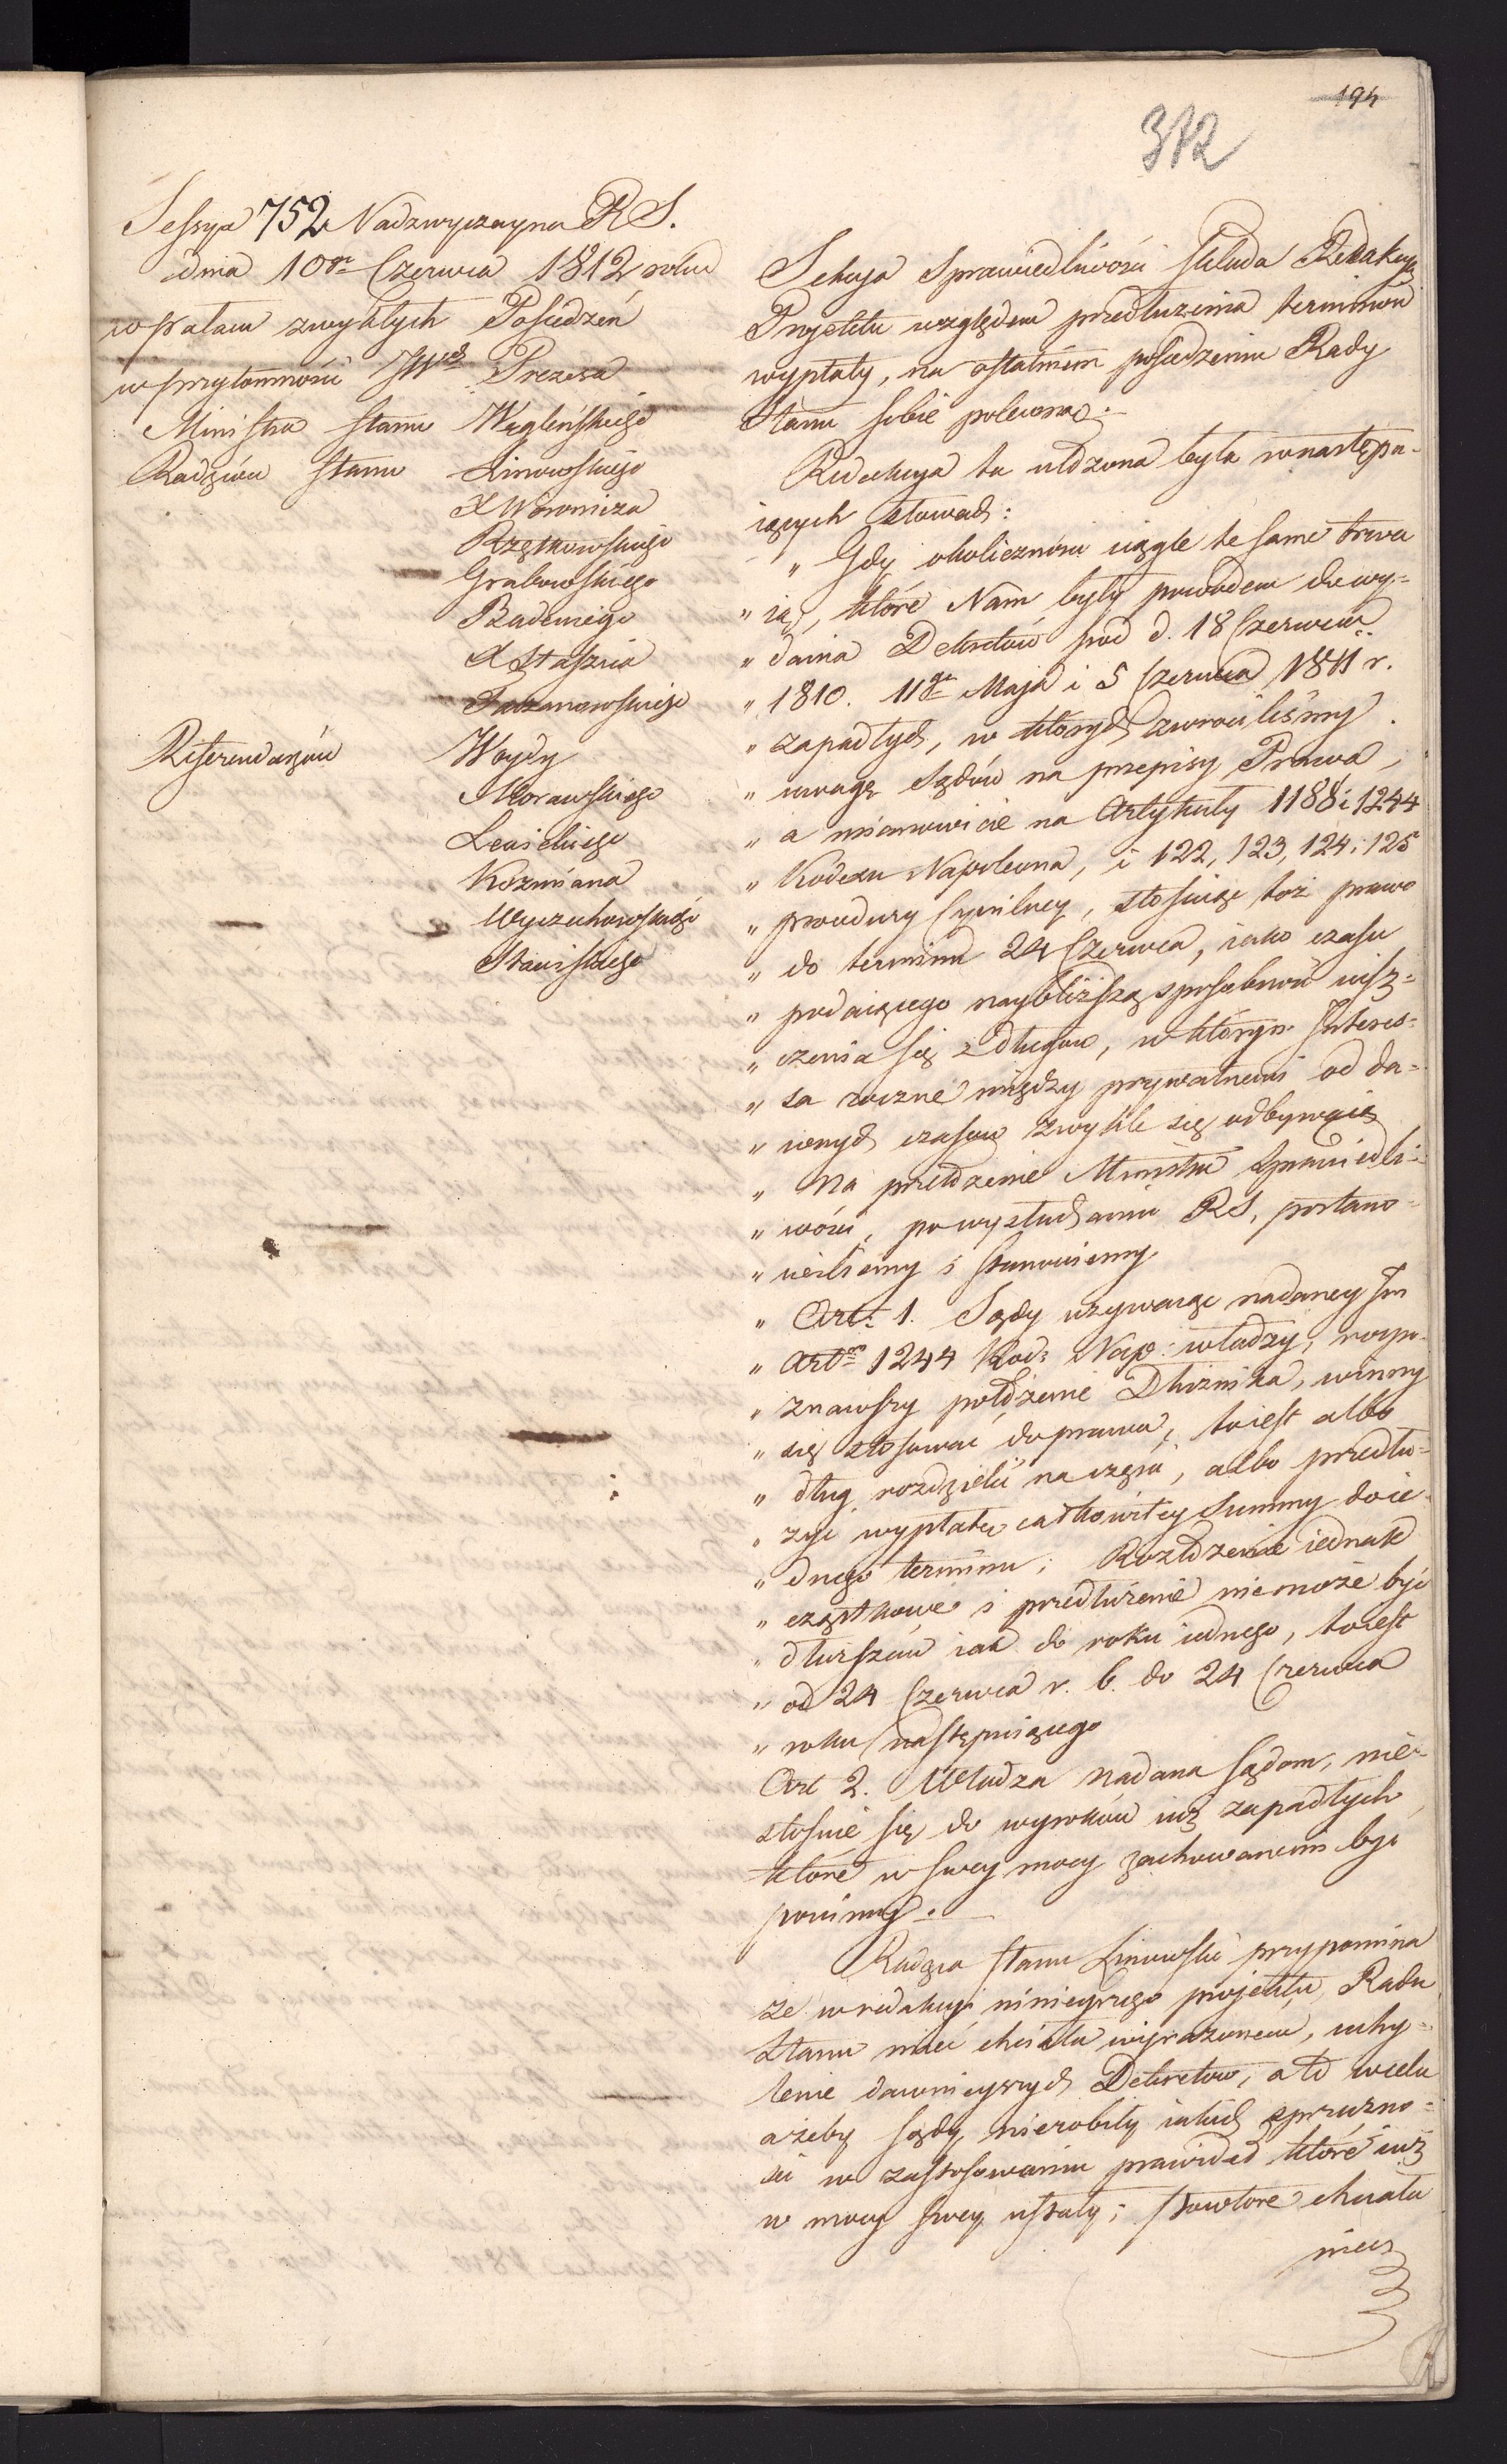 194
312
Sessya 752 Nadzwyczayna RS.
dnia 10go Czerwca 1812 roku
w pałacu zwykłych Posiedzeń
w przytomności JWch Prezesa
Ministra Stanu Węgleńskiego
Radzców Stanu Linowskiego
X Woronicza
Rzętkowskiego
Grabowskiego
Badeniego
X Staszica
Tarzanowskiego
Referendarzów Woydy
Morawskiego
Lewickiego
Kozmiana
Wyczechowskiego
Stawiskiego
Sekcya Sprawiedliwości składa Redakcyą
Projektu względem przedłużenia terminów
wypłaty, na ostatniem posiedzeniu Rady
Stanu sobie poleconą.
Redakcya ta ułożona była w następu-
iących słowach:
„ Gdy okoliczności ciągle te same trwa
„ ią, które Nam były powodem do wy-
„ dania Dekretów pod d. 18 Czerwca
„ 1810. 11go Maja i 5 Czerwca 1811 r.
„ zapadłych, w których zwrociliśmy
„ uwagę Sądów na przepisy Prawa,
„ a mianowicie na Artykuły 1188 i 1244
„ Kodexu Napoleona, i 122, 123, 124 i 125
„ procedury Cywilney, stosuiąc toż prawo
„ do terminu 24 Czerwca, iako czasu
„ podaiącego naybliższą sposobność uisz-
„ czenia się z długów, w którym Interes-
„ sa roczne między prywatnemi od da-
„ wnych czasów zwykle się odbywaią
„ Na przełożenie Ministra Sprawiedli-
„ wości, po wysłuchaniu RS, postano-
„ wiliśmy i stanowiemy
„ Art. 1. Sądy używaiąc nadaney Im
„ Artm 1244 Kod: Nap: władzy, rozpo-
„ znawszy położenie Dłużnika, winny
„ się stosować do prawa, toiest albo
„ dług rozdzielić na części, albo przedłu-
„ żyć wypłatę całkowitey Summy do ie-
„ dnego terminu; Rozłożenie iednak
„ cząstkowe i przedłużenie nie może być
„ dłuższem iak do roku iednego, toiest
„ od 24 Czerwca r. b. do 24 Czerwca
„ roku następuiącego
Art 2. Władza nadana Sądom, nie-
stosuie się do wyroków iuż zapadłych,
które w swey mocy zachowanemi być
powinny.
Radzca Stanu Linowski przypomina
że w redakcyi ninieyszego projektu, Rada
Stanu mieć chciała wyrażonem, uchy-
lenie dawnieyszych Dekretów, a to w celu
ażeby Sądy nie robiły iakich sprzeczno-
ści w zastosowaniu prawideł które iuż
w mocy swey ustały; powtore chciała
mieć